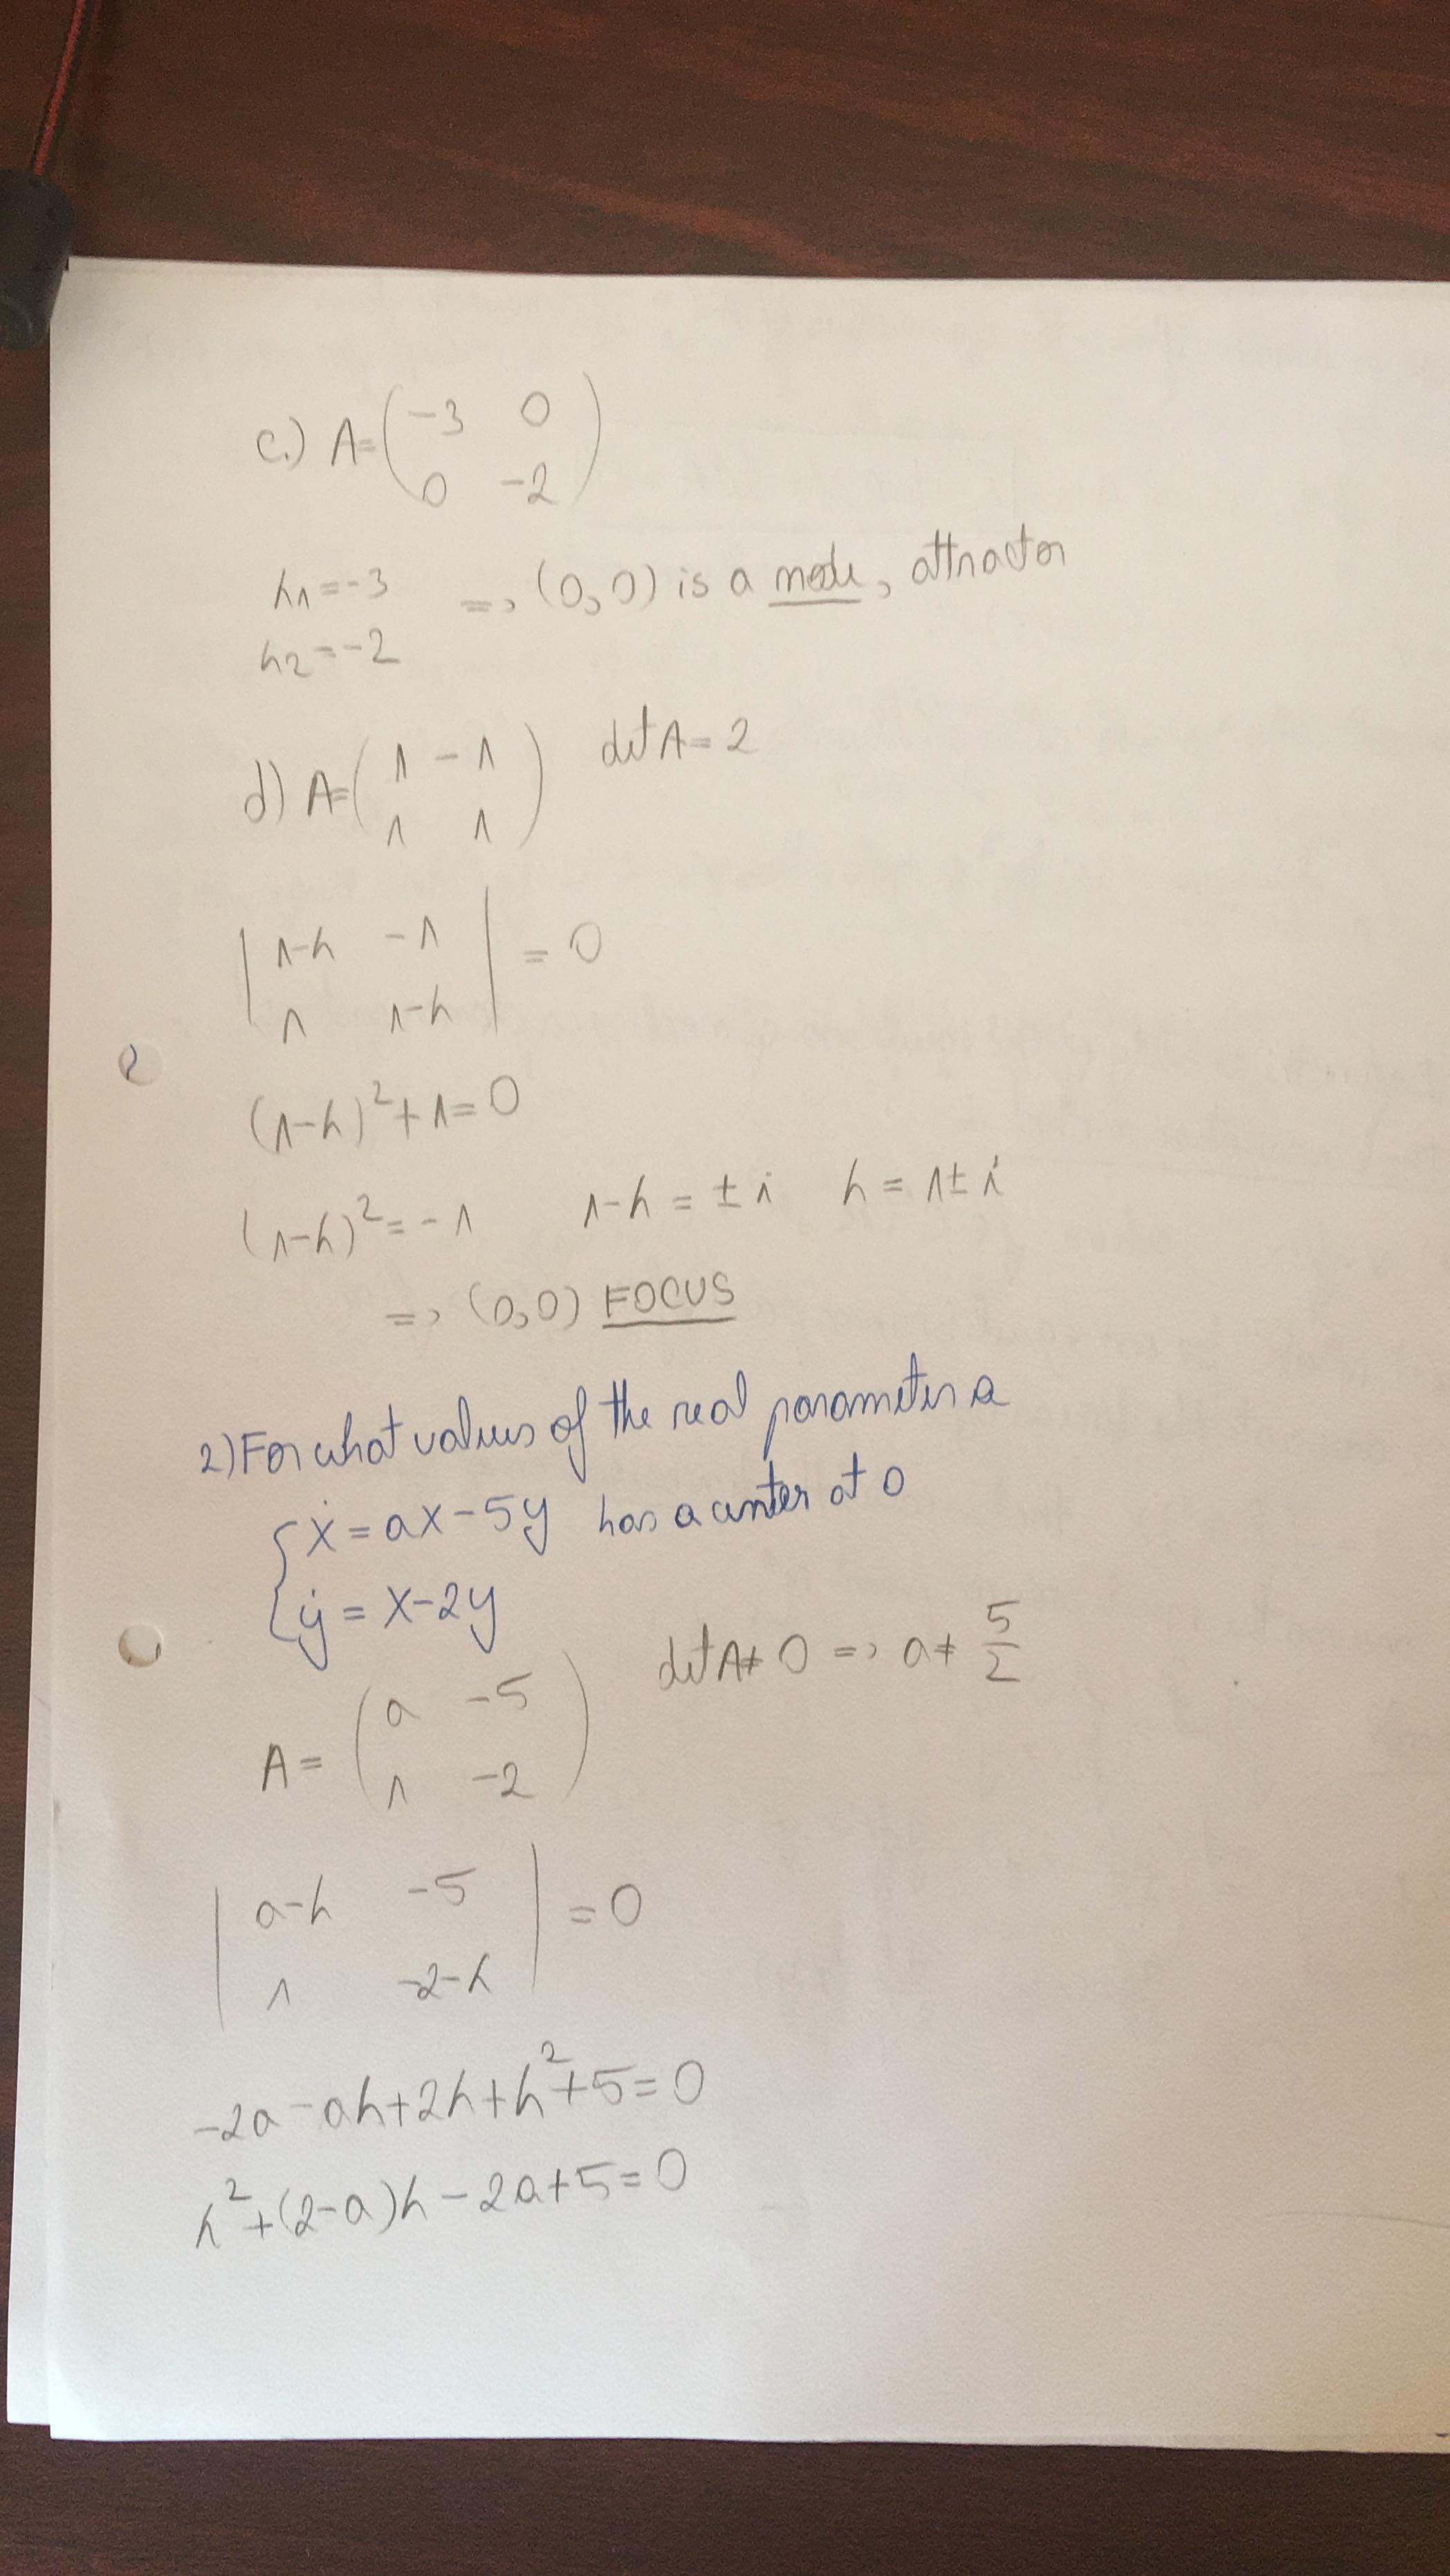 c.) A=(-3 0
0 -2)
λ1=-3 => (0,0) is a node, attractor
λ2=-2
d) A=(1 -1 det A=2
1 1)
|1-λ -1
1 1-λ| = 0
(1-λ)²+1=0
(1-λ)²=-1 1-λ = ±i λ = 1±i
=> (0,0) FOCUS
2) For what values of the real parameter a
{ẋ = ax-5y has a center at 0
ẏ = x-2y
A = (a -5 det A≠0 => a≠ 5/2
1 -2)
|a-λ -5
1 -2-λ| = 0
-2a-aλ+2λ+λ²+5=0
λ²+(2-a)λ-2a+5=0